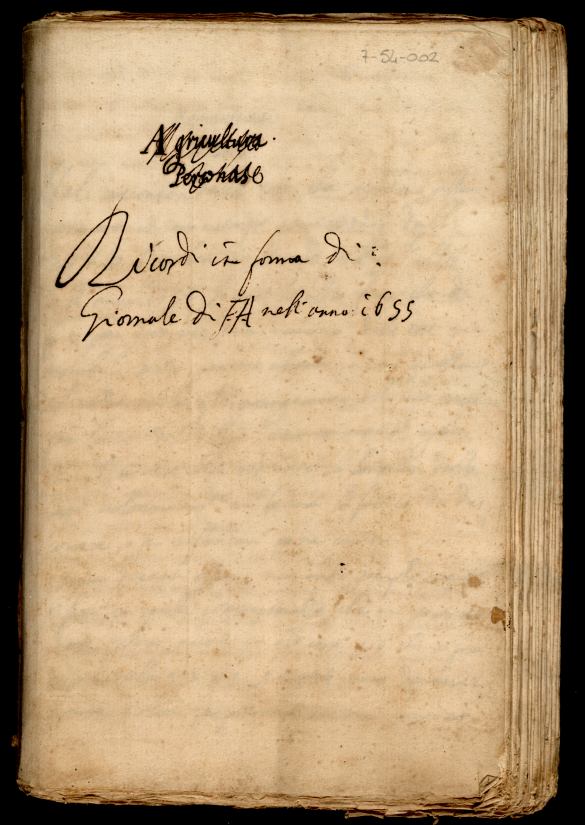 7-54-002
Agricultura
Personale
Ricordi in forma di:
Giornale di FA nell'anno: 1655